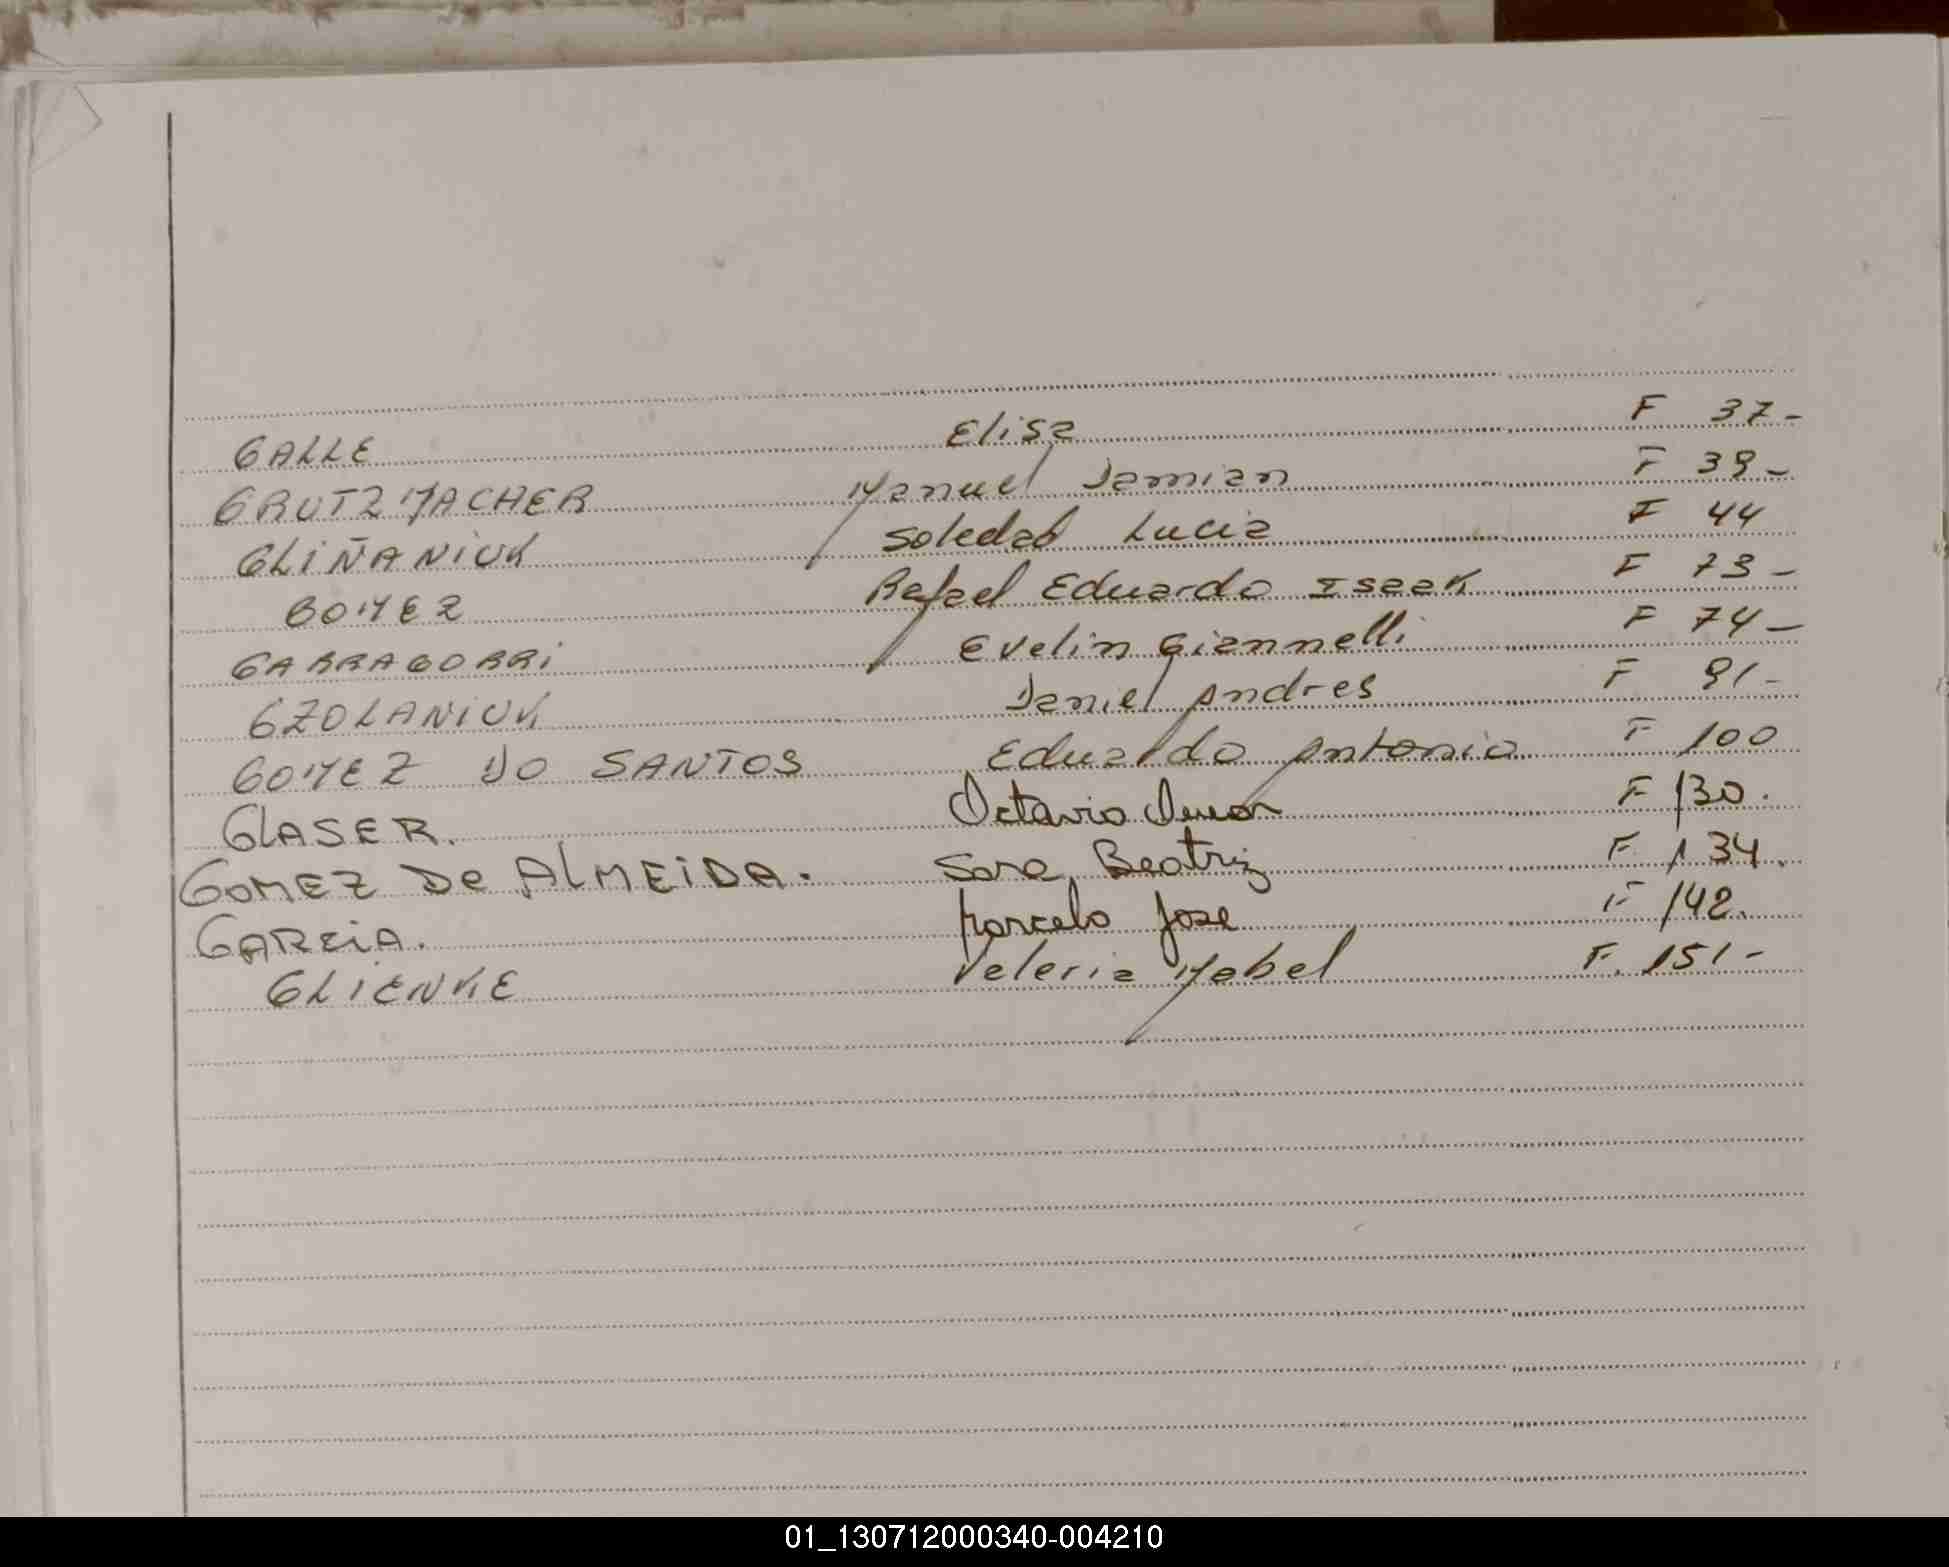 GALLE Elisa F 37-
GRUTZMACHER Manuel Damian F 39-
GLIÑANIUK Soledad Lucia F 44
GOMEZ Rafael Eduardo Isaak F 73-
GARRAGORRI Evelin Giannelli F 74-
GZOLANIUK Daniel Andres F 91-
GOMEZ DO SANTOS Eduardo Antonio F 100
GLASER. Octavio F 130.
GOMEZ De ALMEiDA. Sara Beatriz F. 134.
GARCiA. Marcelo Jose F 142.
GLIENKE Valeria Mabel F. 151-
01_130712000340-004210